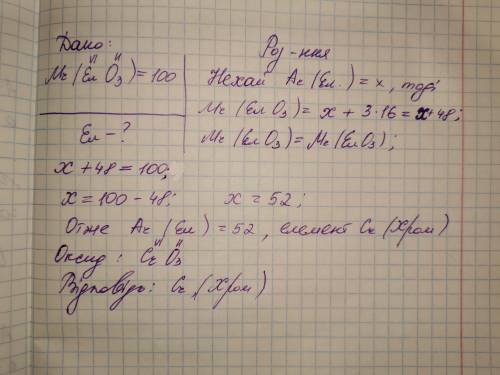 Дано:
Розв-ння
VI II
Mr (Ел O₃) = 100
Нехай Ar (Ел.) = x, тоді
Mr (Ел O₃) = x + 3·16 = x+48;
Ел - ?
Mr (Ел O₃) = Mr (Ел O₃);
x + 48 = 100;
x = 100 - 48; x = 52;
Отже Ar (Ел) = 52, елемент Cr (Хром)
VI II
Оксид: Cr O₃
Відповідь: Cr (Хром)